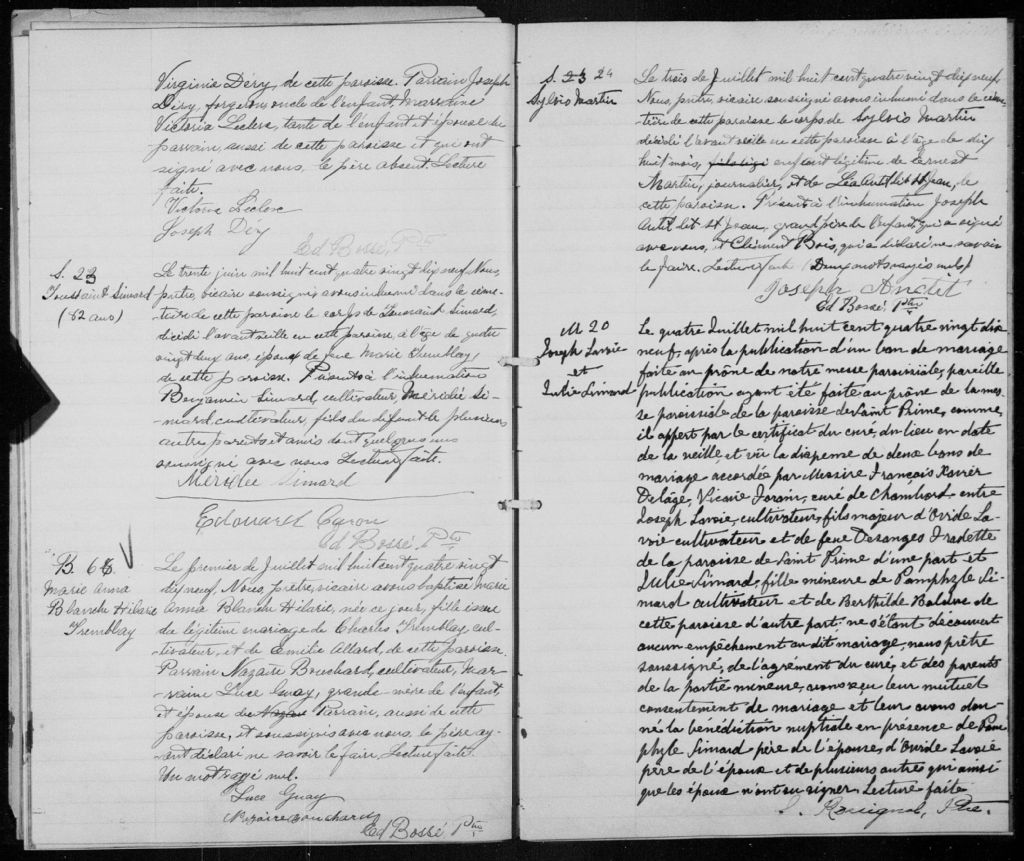 Virginie Déry, de cette paroisse. Parrain Joseph
Déry, forgeron oncle de l'enfant, Marraine
Victoria Leclerc, tante de l'enfant et épouse du
parrain, aussi de cette paroisse et qui ont
signé avec nous, le père absent. Lecture
faite.
Victoria Leclerc
Joseph Déry
Ed Bossé, Ptre
S. 23
Toussaint Simard
(82 ans)
Le trente juin mil huit cent quatre vingt dix neuf, Nous,
prêtre, vicaire soussigné avons inhumé dans le cime-
tière de cette paroisse le corps de Toussaint Simard,
décédé l'avant veille en cette paroisse, à l'âge de quatre
vingt deux ans, époux de feue Marie Tremblay,
de cette paroisse. Présents à l'inhumation
Benjamin Simard, cultivateur, Méridé Si-
mard, cultivateur, fils du défunt et plusieurs
autres parents et amis dont quelques uns
ont signé avec nous Lecture faite.
Simard
Edouard Caron
Ed Bossé, Ptre
B. 68
Marie Anna
Blanche Hilarie
Tremblay
Le premier de Juillet mil huit cent quatre vingt
dix neuf, Nous, prêtre, vicaire avons baptisé Marie
Anna Blanche Hilarie, née ce jour, fille issue
du légitime mariage de Charles Tremblay, cul-
tivateur, et de Emilie Allard, de cette paroisse.
Parrain Nazaire Bouchard, cultivateur, Mar-
raine Luce Guay, grande-mère de l'enfant,
et épouse du Parrain, aussi de cette
paroisse, et soussignés avec nous. le père ay-
ant déclaré ne savoir le faire, Lecture faite.
Un mot rayé nul.
Luce Guay
Nazaire Bouchard
Ed Bossé Ptre
S. 23 24
Sylvio Martin
Le trois de Juillet mil huit cent quatre vingt dix neuf,
Nous, prêtre, vicaire soussigné avons inhumé dans le cime-
tière de cette paroisse le corps de Sylvio Martin
décédé l'avant veille en cette paroisse à l'âge de dix
huit mois, enfant légitime de Ernest
Martin, journalier, et de Léa St Jean, de
cette paroisse. Présents à l'inhumation Joseph
St Jean, grand père de l'enfant, qui a signé
avec nous, et Clément Bois, qui a déclaré ne savoir
le faire. Lecture faite (Deux mots rayés nuls)
Joseph
Ed Bossé, Ptre
M 20
Joseph Lavoie
et
Julie Simard
Le quatre Juillet mil huit cent quatre vingt dix
neuf, après la publication d'un ban de mariage
faite au prône de notre messe paroissiale, pareille
publication ayant été faite au prône de la mes-
se paroissiale de la paroisse de Saint Prime, comme
il appert par le certificat du curé du lieu en date
de la veille et vû la dispense de deux bans de
mariage accordée par Messire François Xavier
Delâge, Vicaire Forain, curé de Chambord, entre
Joseph Lavoie, cultivateur, fils majeur d'Ovide La-
voie cultivateur et de feue Desanges Fradette
de la paroisse de Saint Prime d'une part et
Julie Simard, fille mineure de Pamphyle Si-
mard cultivateur et de Berthilde Bolduc de
cette paroisse d'autre part: ne s'étant découvert
aucun empêchement au dit mariage, nous prêtre
soussigné, de l'agrément du curé, et des parents
de la partie mineure, avons reçu leur mutuel
consentement de mariage et leur avons don-
né la bénédiction nuptiale en présence de Pam-
phyle Simard père de l'épouse, d'Ovide Lavoie
père de l'époux et de plusieurs autres qui ainsi
que les époux n'ont su signer. Lecture faite
Rossignol, Ptre.